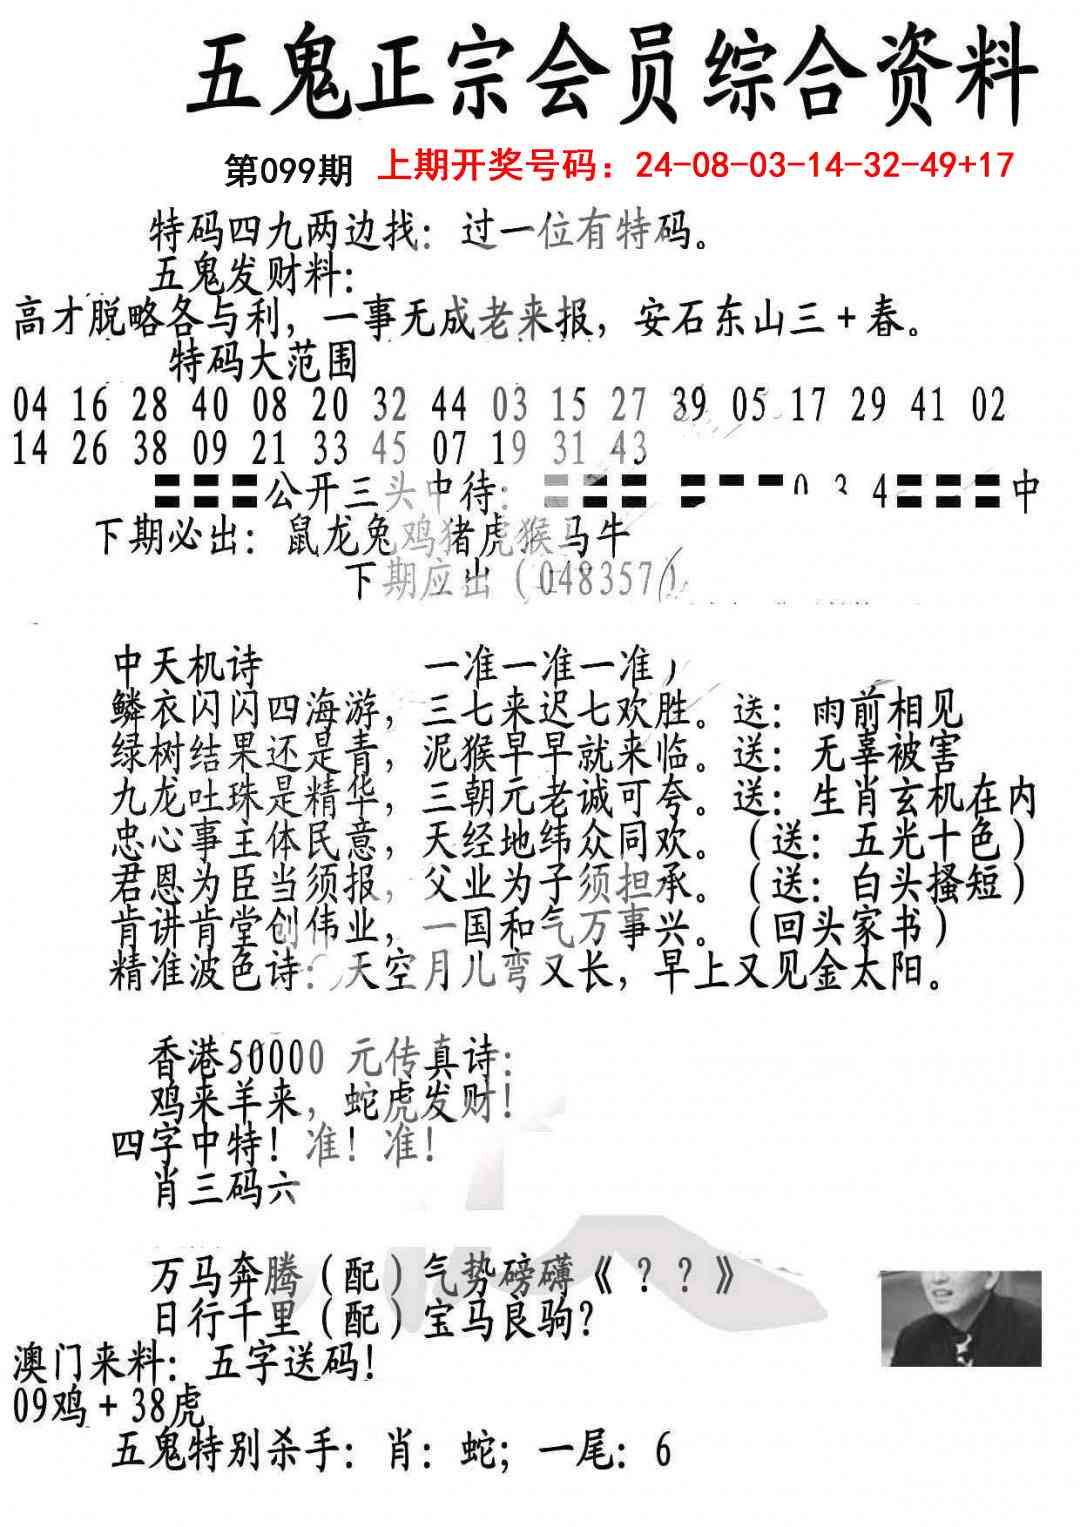 五鬼正宗会员综合资料
第099期 上期开奖号码：24-08-03-14-32-49+17
特码四九两边找：过一位有特码。
五鬼发财料：
高才脱略各与利，一事无成老来报，安石东山三+春。
特码大范围
04 16 28 40 08 20 32 44 03 15 27 39 05 17 29 41 02
14 26 38 09 21 33 45 07 19 31 43
公开三头中待： 0 3 4 中
下期必出：鼠龙兔鸡猪虎猴马牛
下期应出（0483571）
中天机诗 一准一准一准
鳞衣闪闪四海游，三七来迟七欢胜。送：雨前相见
绿树结果还是青，泥猴早早就来临。送：无辜被害
九龙吐珠是精华，三朝元老诚可夸。送：生肖玄机在内
忠心事主体民意，天经地纬众同欢。（送：五光十色）
君恩为臣当须报，父业为子须担承。（送：白头搔短）
肯讲肯堂创伟业，一国和气万事兴。（回头家书）
精准波色诗：天空月儿弯又长，早上又见金太阳。
香港50000 元传真诗：
鸡来羊来，蛇虎发财！
四字中特！准！准！
肖三码六
万马奔腾（配）气势磅礴《？？》
日行千里（配）宝马良驹？
澳门来料：五字送码！
09鸡+38虎
五鬼特别杀手：肖：蛇；一尾：6